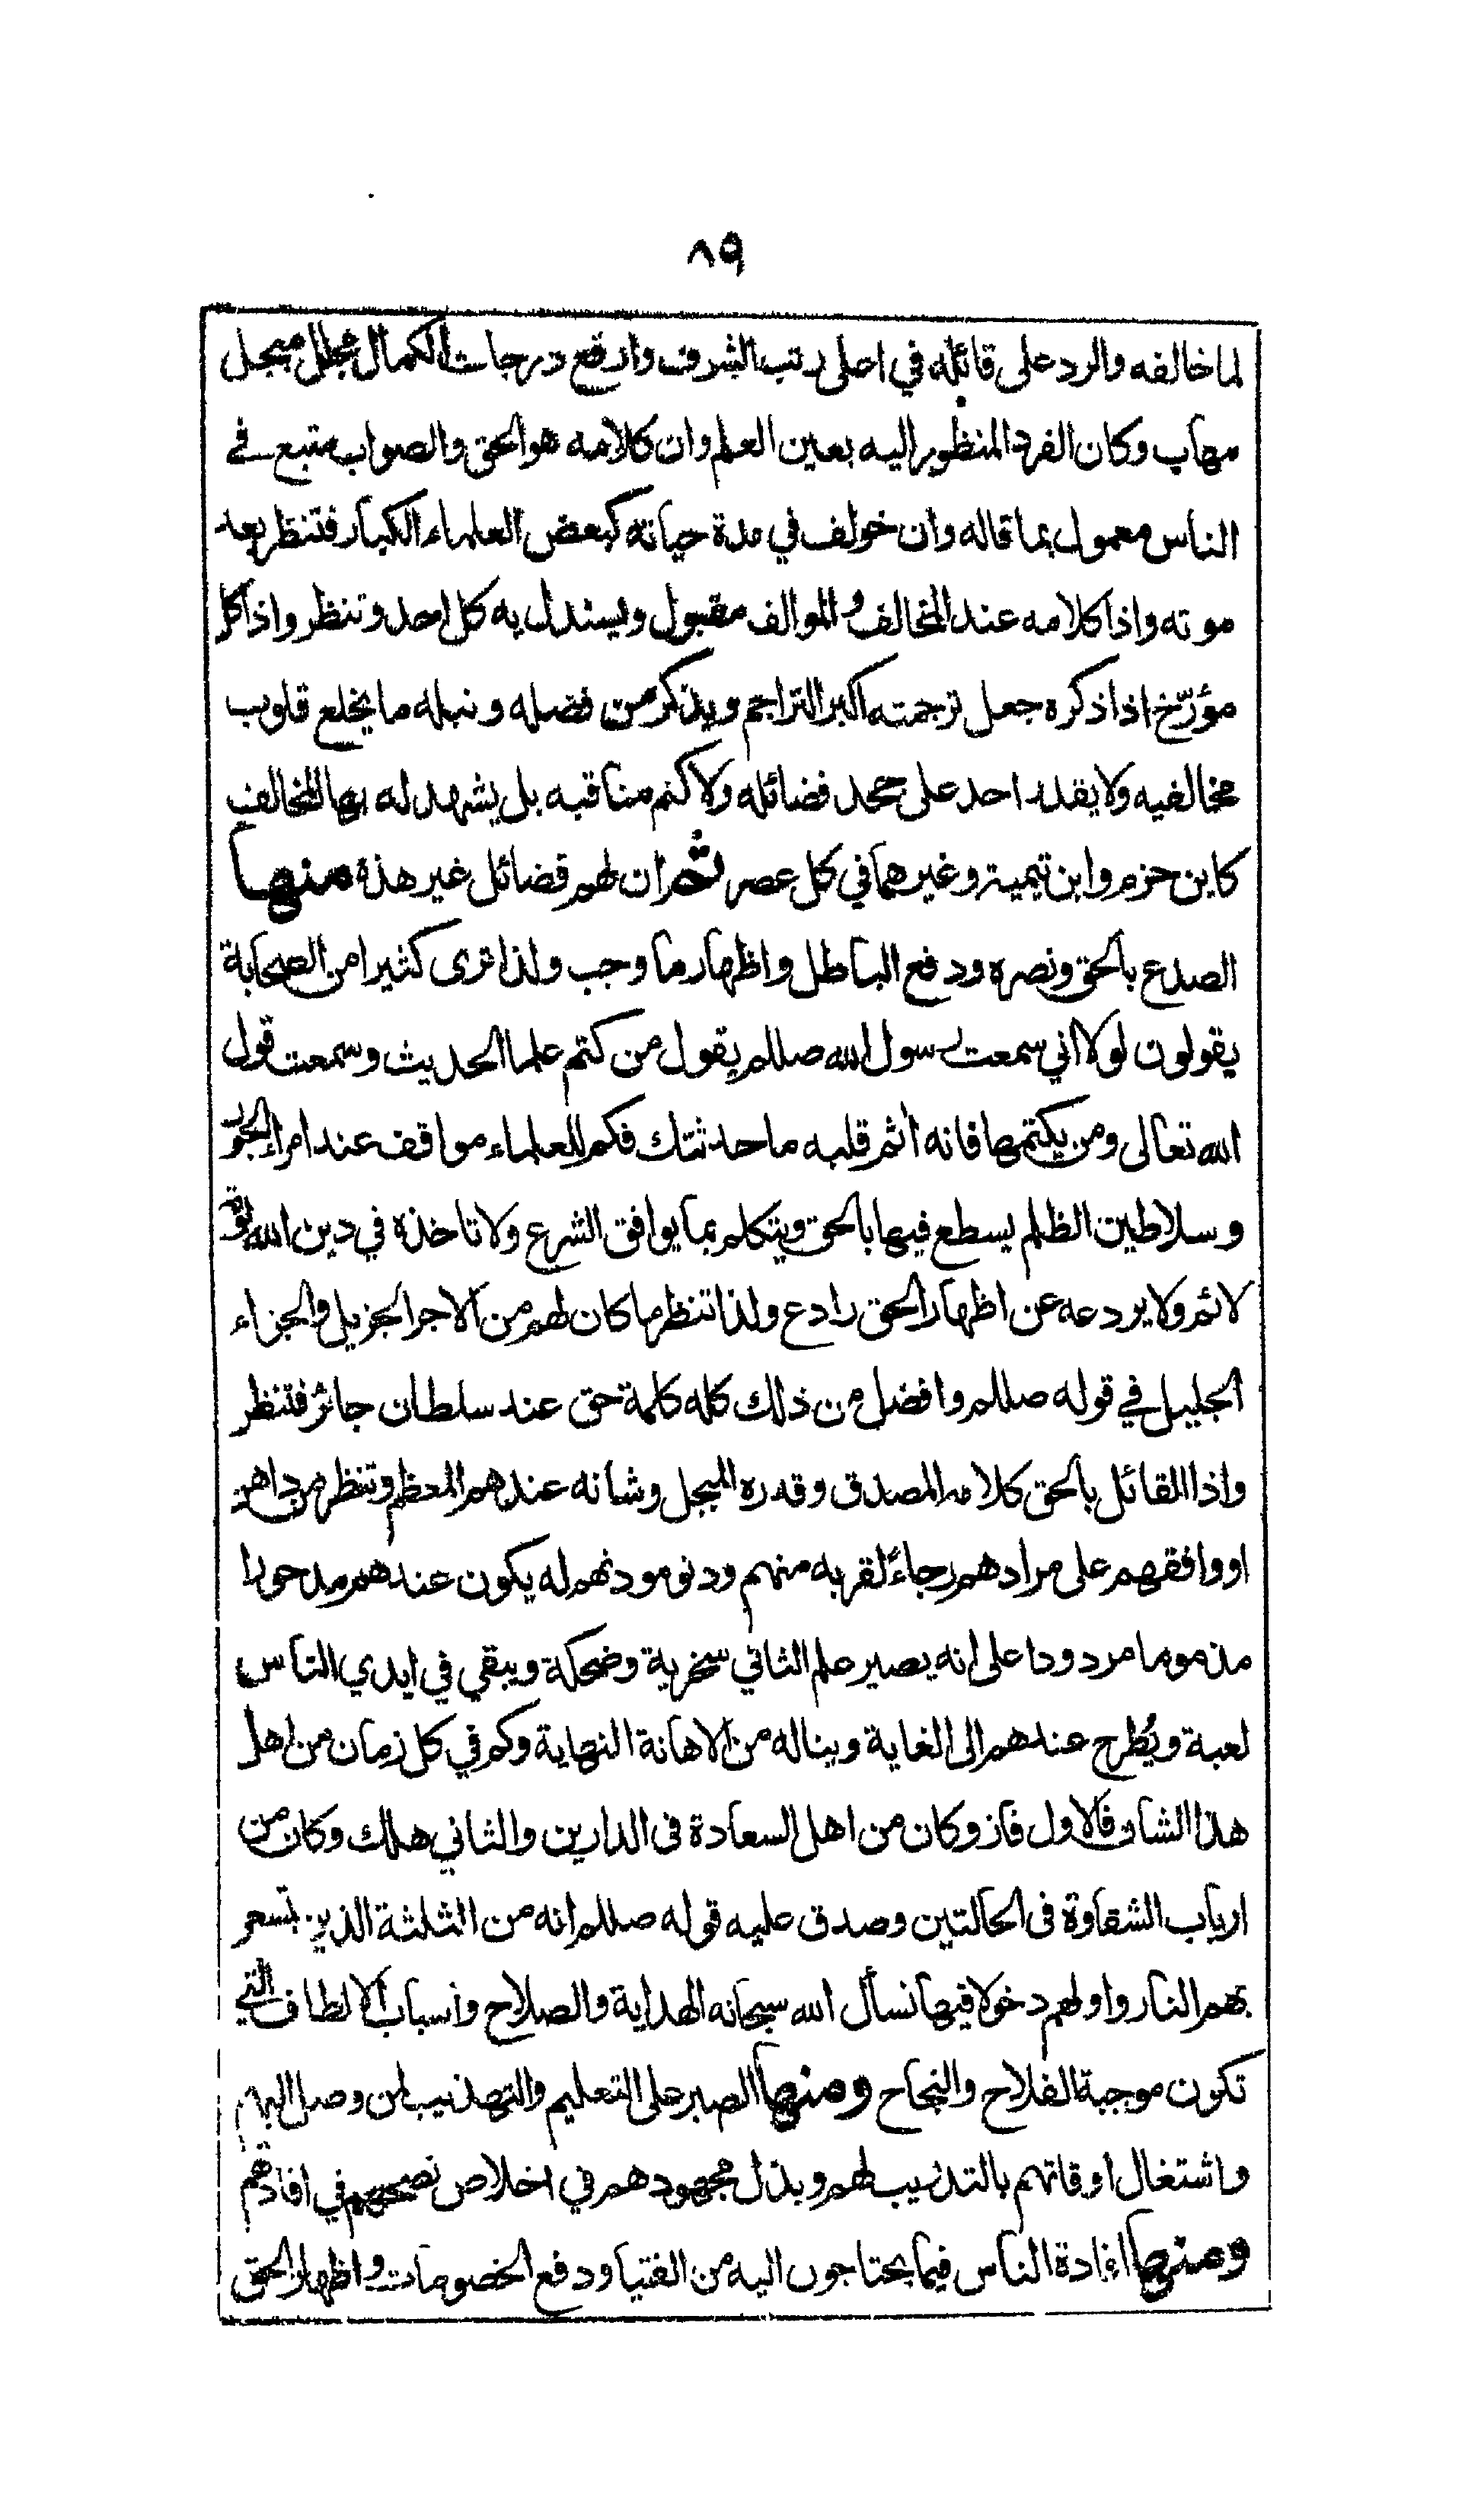 ٨٩
لما خالفه والرد على قائله في اعلى رتب الشرف وارفع درجات الكمال مجلل مبجل
مهاب وكان الفرد المنظور اليه بعين العلم وان كلامه هو الحق والصواب متبع في
الناس معمول بما قاله وان خولف في مدة حياته كبعض العلماء الكبار فتنظر بعد
موته واذا كلامه عند المخالف والموالف مقبول ويستدل به كل احد وتنظر واذا كل
مؤرّخ اذا ذكره جعل ترجمته اكبر التراجم ويذكر من فضله ونبله ما يخلع قلوب
مخالفيه ولا يقدر احد على جحد فضائله ولا كتم مناقبه بل يشهد له بها المخالف
كابن حزم وابن تيمية وغيرهما في كل عصر ثم ان لهم فضائل غير هذه منها
الصدع بالحق ونصره ودفع الباطل واظهار ما وجب ولذا ترى كثيرا من الصحابة
يقولون لولا اني سمعت رسول الله صللم يقول من كتم علما الحديث وسمعت قول
الله تعالى ومن يكتمها فانه اثم قلبه ما حدثتك فكم للعلماء مواقف عند امراء الجور
وسلاطين الظلم يسطع فيها بالحق ويتكلم بما يوافق الشرع ولا تاخذه في دين الله لومة
لائم ولا يردعه عن اظهار الحق رادع ولذا تنظر ما كان لهم من الاجر الجزيل والجزاء
الجليل في قوله صللم وافضل من ذلك كله كلمة حق عند سلطان جائز فتنظر
واذا القائل بالحق كلامه المصدق وقدره المبجل وشانه عندهم المعظم وتنظر من داهن
او وافقهم على مرادهم رجاءً لقربه منهم ودنو مودتهم له يكون عندهم مدحورا
مذموما مردودا على انه يصير علم الثاني سخرية وضحكة ويبقي في ايدي الناس
لعبة ويُطرح عندهم الى الغاية ويناله من الاهانة النهاية وكم في كل زمان من اهل
هذا الشان فالاول فاز وكان من اهل السعادة فى الدارين والثاني هلك وكان من
ارباب الشقاوة فى الحالتين وصدق عليه قوله صللم انه من الثلثة الذين تسعر
بهم النار واولهم دخولا فيها نسأل الله سبحانه الهداية والصلاح وأسباب الالطاف التي
تكون موجبة الفلاح والنجاح ومنها الصبر على التعليم والتهذيب لمن وصل اليهم
واشتغال اوقاتهم بالتدريب لهم وبذل مجهودهم في اخلاص نصحهم في افادتهم
ومنها افادة الناس فيما يحتاجون اليه من الفتيا ودفع الخصومات واظهار الحق